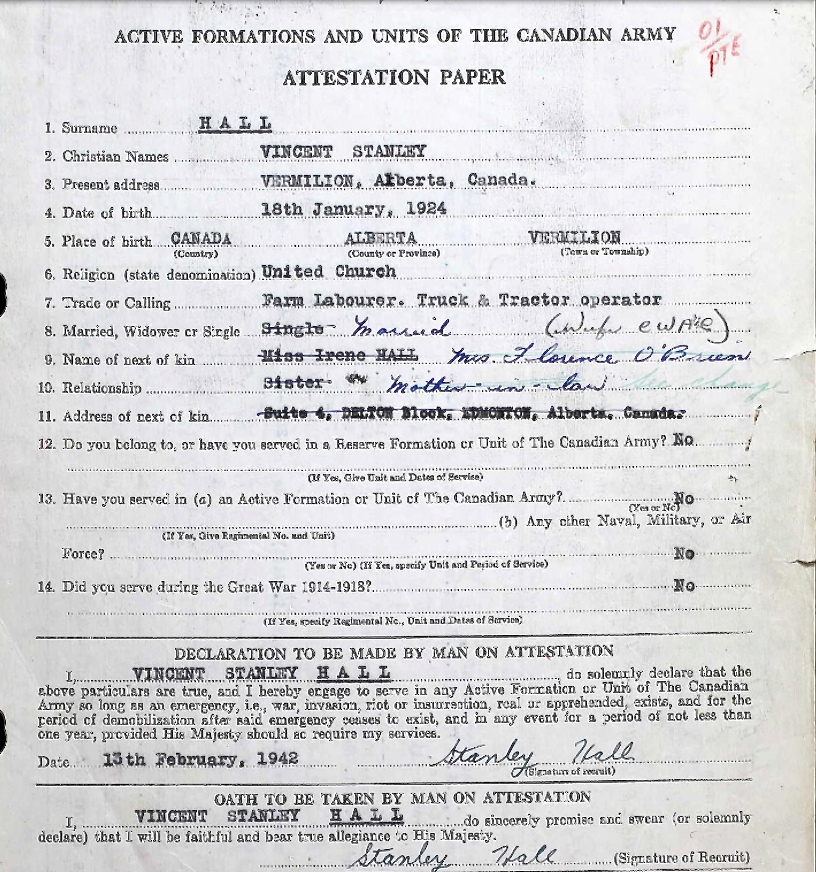 ACTIVE FORMATIONS AND UNITS OF THE CANADIAN ARMY
01/PTE
ATTESTATION PAPER
1. Surname HALL
2. Christian Names VINCENT STANLEY
3. Present address VERMILION, Alberta, Canada.
4. Date of birth 18th January, 1924
5. Place of birth CANADA ALBERTA VERMILION
(Country) (County or Province) (Town or Township)
6. Religion (state denomination) United Church
7. Trade or Calling Farm Labourer. Truck & Tractor operator
8. Married, Widower or Single Single Married (Wife CWAC)
9. Name of next of kin Miss Irene HALL Mrs. Florence O'Brien
10. Relationship Sister Mother-in-law See change
11. Address of next of kin Suite 4, DELTON Block, EDMONTON, Alberta. Canada.
12. Do you belong to, or have you served in a Reserve Formation or Unit of The Canadian Army? No
(If Yes, Give Unit and Dates of Service)
13. Have you served in (a) an Active Formation or Unit of The Canadian Army? No
(Yes or No)
(b) Any other Naval, Military, or Air
(If Yes, Give Regimental No. and Unit)
Force? No
(Yes or No) (If Yes, specify Unit and Period of Service)
14. Did you serve during the Great War 1914-1918? No
(If Yes, specify Regimental No., Unit and Dates of Service)
DECLARATION TO BE MADE BY MAN ON ATTESTATION
I, VINCENT STANLEY HALL, do solemnly declare that the
above particulars are true, and I hereby engage to serve in any Active Formation or Unit of The Canadian
Army so long as an emergency, i.e., war, invasion, riot or insurrection, real or apprehended, exists, and for the
period of demobilization after said emergency ceases to exist, and in any event for a period of not less than
one year, provided His Majesty should so require my services.
Date 13th February, 1942 Stanley Hall
(Signature of recruit)
OATH TO BE TAKEN BY MAN ON ATTESTATION
I, VINCENT STANLEY HALL do sincerely promise and swear (or solemnly
declare) that I will be faithful and bear true allegiance to His Majesty.
Stanley Hall (Signature of Recruit)